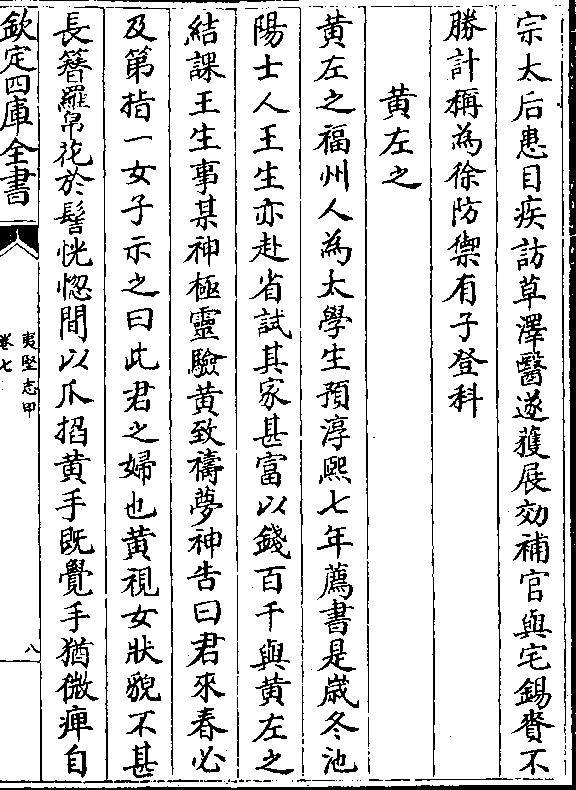 宗太后患目疾訪草澤醫遂獲展効補官與宅錫賚不
勝計稱為徐防禦有子登科
黃左之
黃左之福州人為太學生預淳熙七年薦書是歲冬池
陽士人王生亦赴省試其家甚富以錢百千與黃左之
結課王生事某神極靈驗黃致禱夢神告曰君來春必
及第指一女子示之曰此君之婦也黃視女狀貌不甚
長簪羅帛花於髻恍惚間以爪掐黃手既覺手猶微痺自
欽定四庫全書
夷堅志甲
卷七
八